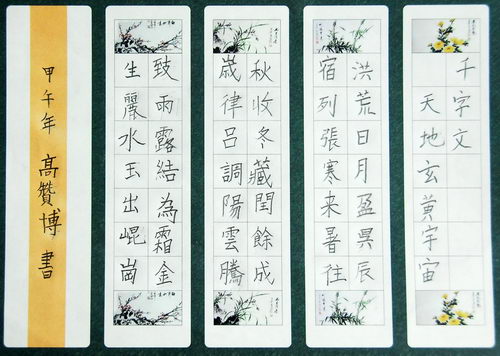 千字文
天地玄黄宇宙
洪荒日月盈昃辰
宿列張寒来暑往
秋收冬藏閏餘成
歲律呂調陽雲騰
致雨露結為霜金
生麗水玉出崐崗
甲午年 高贊博書